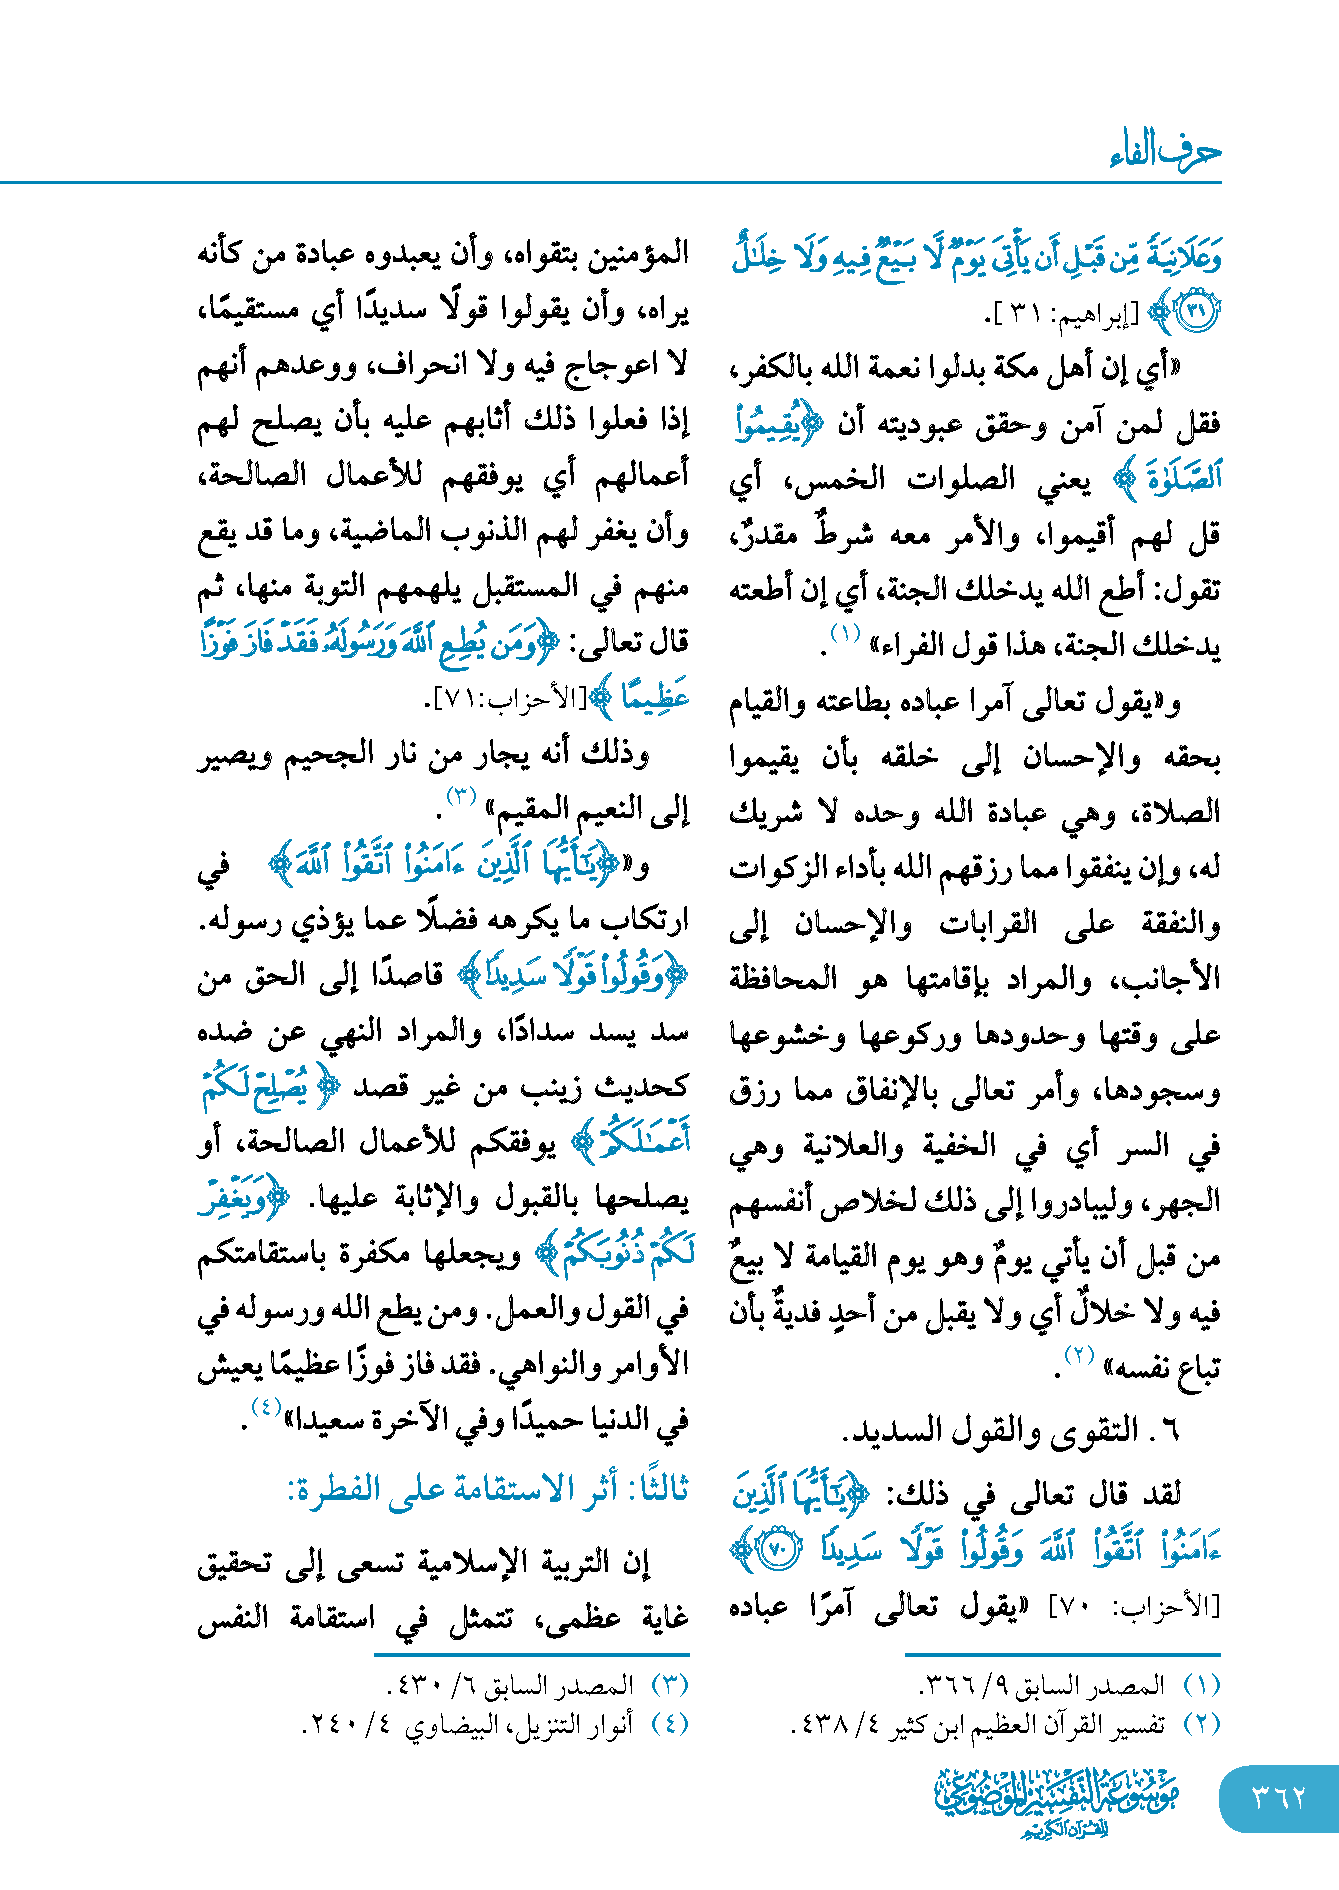 حرف الفاء
وَعَلَانِيَةً مِّن قَبْلِ أَن يَأْتِيَ يَوْمٌ لَّا بَيْعٌ فِيهِ وَلَا خِلَٰلٌ
﴿٣١﴾ [إبراهيم: ٣١].
«أي إن أهل مكة بدلوا نعمة الله بالكفر،
فقل لمن آمن وحقق عبوديته أن ﴿يُقِيمُوا۟
ٱلصَّلَوٰةَ﴾ يعني الصلوات الخمس، أي
قل لهم أقيموا، والأمر معه شرطٌ مقدرٌ،
تقول: أطع الله يدخلك الجنة، أي إن أطعته
يدخلك الجنة، هذا قول الفراء» (١).
و«يقول تعالى آمرا عباده بطاعته والقيام
بحقه والإحسان إلى خلقه بأن يقيموا
الصلاة، وهي عبادة الله وحده لا شريك
له، وإن ينفقوا مما رزقهم الله بأداء الزكوات
والنفقة على القرابات والإحسان إلى
الأجانب، والمراد بإقامتها هو المحافظة
على وقتها وحدودها وركوعها وخشوعها
وسجودها، وأمر تعالى بالإنفاق مما رزق
في السر أي في الخفية والعلانية وهي
الجهر، وليبادروا إلى ذلك لخلاص أنفسهم
من قبل أن يأتي يومٌ وهو يوم القيامة لا بيعٌ
فيه ولا خلالٌ أي ولا يقبل من أحدٍ فديةٌ بأن
تباع نفسه» (٢).
٦. التقوى والقول السديد.
لقد قال تعالى في ذلك: ﴿يَٰٓأَيُّهَا ٱلَّذِينَ
ءَامَنُوا۟ ٱتَّقُوا۟ ٱللَّهَ وَقُولُوا۟ قَوْلًا سَدِيدًا ﴿٧٠﴾
[الأحزاب: ٧٠] «يقول تعالى آمرًا عباده
المؤمنين بتقواه، وأن يعبدوه عبادة من كأنه
يراه، وأن يقولوا قولًا سديدًا أي مستقيمًا،
لا اعوجاج فيه ولا انحراف، ووعدهم أنهم
إذا فعلوا ذلك أثابهم عليه بأن يصلح لهم
أعمالهم أي يوفقهم للأعمال الصالحة،
وأن يغفر لهم الذنوب الماضية، وما قد يقع
منهم في المستقبل يلهمهم التوبة منها، ثم
قال تعالى: ﴿وَمَن يُطِعِ ٱللَّهَ وَرَسُولَهُۥ فَقَدْ فَازَ فَوْزًا
عَظِيمًا﴾ [الأحزاب:٧١].
وذلك أنه يجار من نار الجحيم ويصير
إلى النعيم المقيم» (٣).
و«﴿يَٰٓأَيُّهَا ٱلَّذِينَ ءَامَنُوا۟ ٱتَّقُوا۟ ٱللَّهَ﴾ في
ارتكاب ما يكرهه فضلًا عما يؤذي رسوله.
﴿وَقُولُوا۟ قَوْلًا سَدِيدًا﴾ قاصدًا إلى الحق من
سد يسد سدادًا، والمراد النهي عن ضده
كحديث زينب من غير قصد ﴿يُصْلِحْ لَكُمْ
أَعْمَٰلَكُمْ﴾ ويوفقكم للأعمال الصالحة، أو
يصلحها بالقبول والإثابة عليها. ﴿وَيَغْفِرْ
لَكُمْ ذُنُوبَكُمْ﴾ ويجعلها مكفرة باستقامتكم
في القول والعمل. ومن يطع الله ورسوله في
الأوامر والنواهي. فقد فاز فوزًا عظيمًا يعيش
في الدنيا حميدًا وفي الآخرة سعيدا»(٤).
ثالثًا: أثر الاستقامة على الفطرة:
إن التربية الإسلامية تسعى إلى تحقيق
غاية عظمى، تتمثل في استقامة النفس
(١) المصدر السابق ٩/ ٣٦٦.
(٢) تفسير القرآن العظيم ابن كثير ٤/ ٤٣٨.
(٣) المصدر السابق ٦/ ٤٣٠.
(٤) أنوار التنزيل، البيضاوي ٤/ ٢٤٠.
مَوسُوعَة التَّفسِير المَوضُوعِي
للقرآن الكريم
٣٦٢